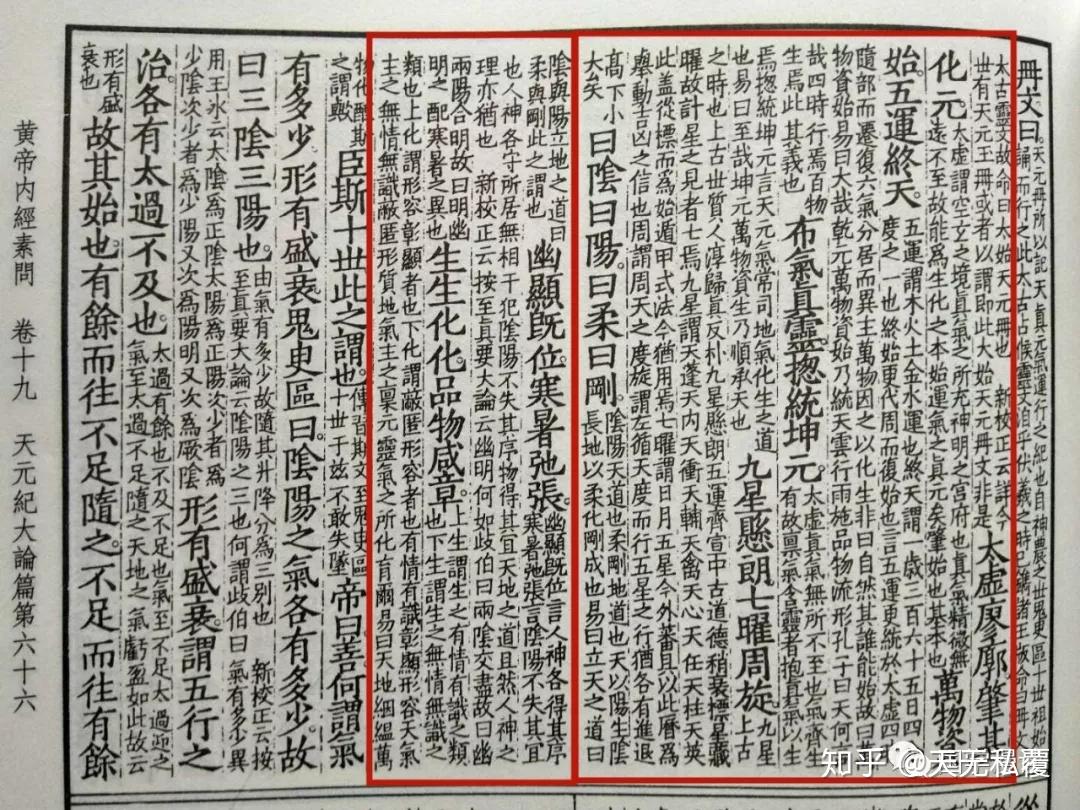 冊文曰天元冊所以記天真元氣運行之紀也自神農之世鬼臾區十世祖始誦而行之此太古占候靈文洎乎伏羲之時已鐫諸玉版命曰冊文
太古靈文故命曰太始天元冊也 新校正云詳今世有天元玉冊或者以謂即此太始天元冊文非是太虛廖廓肇基
化元太虛謂空玄之境真氣之所充神明之宮府也真氣精微無遠不至故能為生化之本始運氣之真元矣肇始也基本也萬物資
始五運終天五運謂木火土金水運也終天謂一歲三百六十五日四分度之一也終始更代周而復始也言五運更統於太虛四時
隨部而遷復六氣分居而異主萬物因之以化生非曰自然其誰能始故曰萬物資始易曰大哉乾元萬物資始乃統天雲行雨施品物流形孔子曰天何言
哉四時行焉百物生焉此其義也布氣真靈揔統坤元太虛真氣無所不至也氣齊生有故禀氣含靈者抱真氣以生
焉揔統坤元言天元氣常司地氣化生之道也易曰至哉坤元萬物資生乃順承天也九星懸朗七曜周旋九星上古
之時也上古世質人淳歸真反朴九星懸朗五運齊宣中古道德稍衰標星藏曜故計星之見者七焉九星謂天蓬天內天衝天輔天禽天心天任天柱天英
此蓋從標而為始遁甲式法今猶用焉七曜謂日月五星今外蕃具以此曆為舉動吉凶之信也周謂周天之度旋謂左循天度而行五星之行猶各有進退
高下小大矣曰陰曰陽曰柔曰剛陰陽天道也柔剛地道也天以陽生陰長地以柔化剛成也易曰立天之道曰
陰與陽立地之道曰柔與剛此之謂也幽顯既位寒暑弛張幽顯既位言人神各得其序寒暑弛張言陰陽不失其宜
也人神各守所居無相干犯陰陽不失其序物得其宜天地之道且然人神之理亦猶也 新校正云按至真要大論云幽明何如歧伯曰兩陰交盡故曰幽
兩陽合明故曰明幽明之配寒暑之異也生生化化品物咸章上生謂生之有情有識之類也下生謂生之無情無識之
類也上化謂形容彰顯者也下化謂蔽匿形容者也有情有識彰顯形容天氣主之無情無識蔽匿形質地氣主之禀元靈氣之所化育爾易曰天地絪縕萬
物化醇斯之謂歟臣斯十世此之謂也傳習斯文至鬼臾區十世于兹不敢失墜帝曰善何謂氣
有多少形有盛衰鬼臾區曰陰陽之氣各有多少故
曰三陰三陽也由氣有多少故隨其升降分為三別也 新校正云按至真要大論云陰陽之三也何謂歧伯曰氣有多少異
用王冰云太陰為正陰太陽為正陽次少者為少陰次少者為少陽又次為陽明又次為厥陰形有盛衰謂五行之
治各有太過不及也太過有餘也不及不足也氣至不足太過迎之氣至太過不足隨之天地之氣虧盈如此故云
形有盛衰也故其始也有餘而往不足隨之不足而往有餘
黃帝內經素問 卷十九 天元紀大論篇第六十六
知乎 @天无私覆